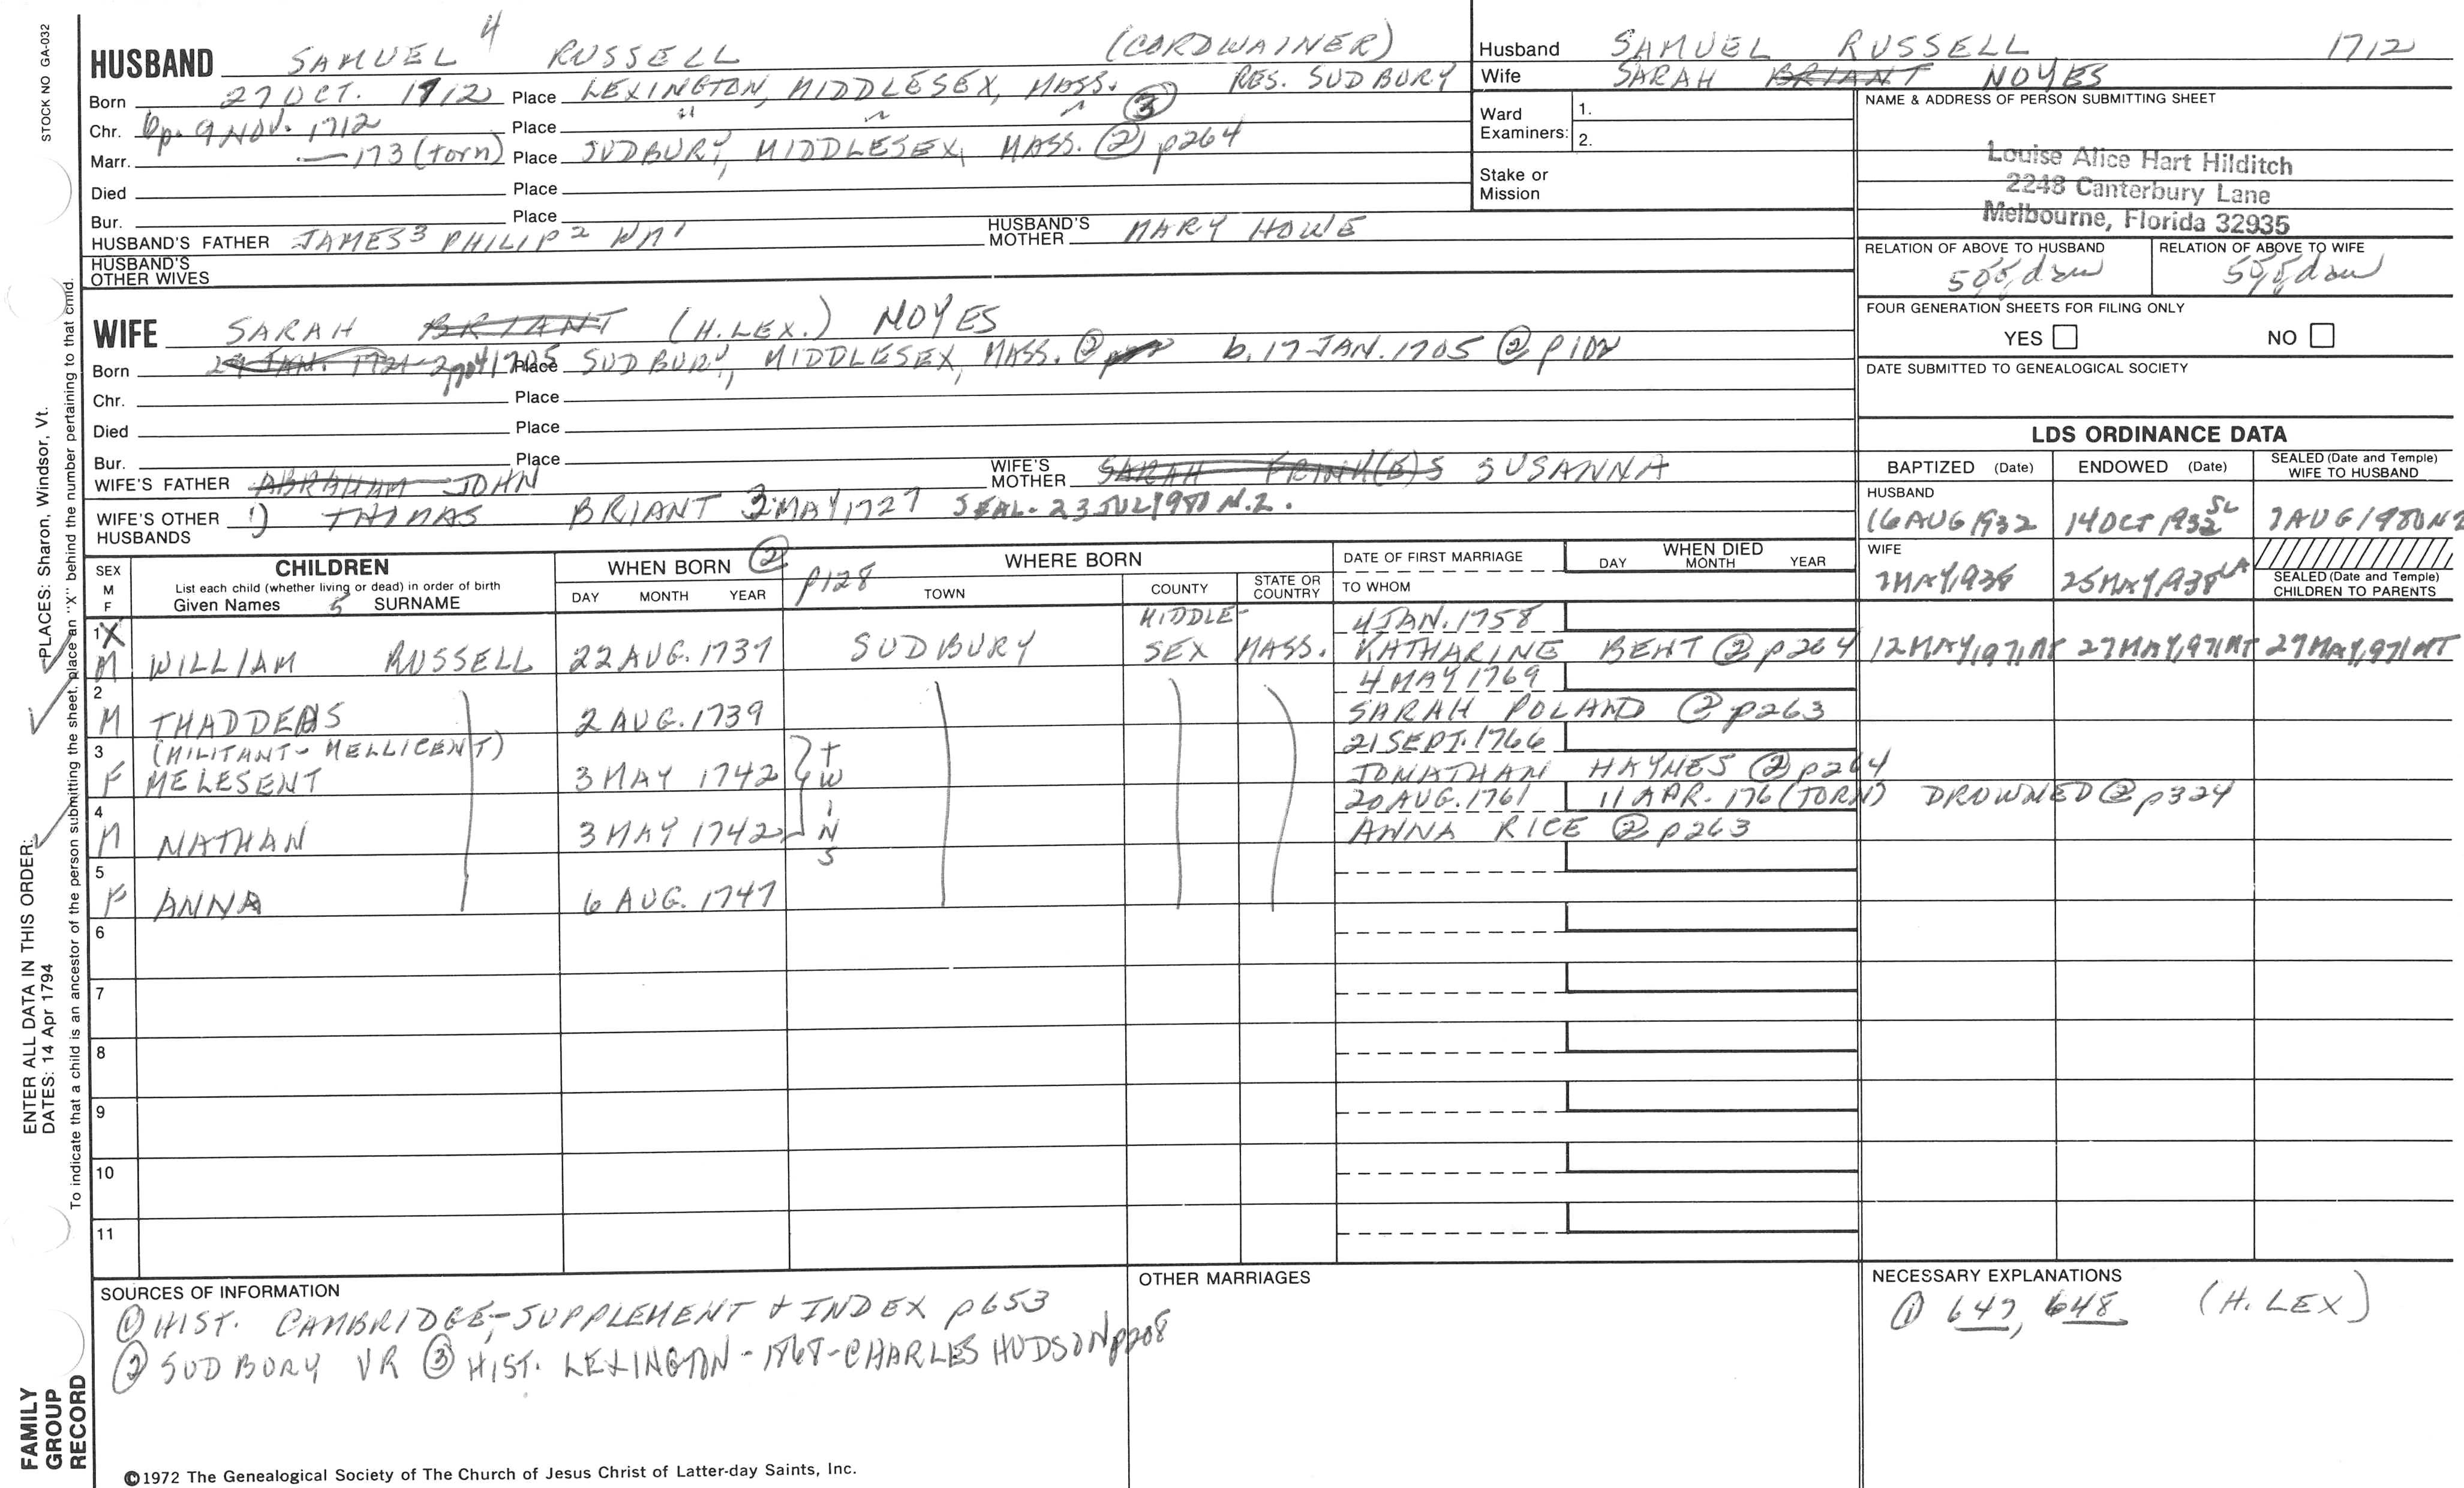 STOCK NO GA-032
HUSBAND SAMUEL 4 RUSSELL (CORDWAINER)
Born 27 OCT. 1712 Place LEXINGTON, MIDDLESEX, MASS. RES. SUDBURY
Chr. bp. 9 NOV. 1712 Place " " " ③
Marr. — 173 (torn) Place SUDBURY, MIDDLESEX, MASS. ② p264
Died Place
Bur. Place
HUSBAND'S FATHER JAMES3 PHILIP2 WM1 HUSBAND'S MOTHER MARY HOWE
HUSBAND'S OTHER WIVES
Husband SAMUEL RUSSELL 1712
Wife SARAH BRIANT NOYES
Ward Examiners: 1.
2.
Stake or Mission
NAME & ADDRESS OF PERSON SUBMITTING SHEET
Louise Alice Hart Hilditch
2248 Canterbury Lane
Melbourne, Florida 32935
RELATION OF ABOVE TO HUSBAND RELATION OF ABOVE TO WIFE
FOUR GENERATION SHEETS FOR FILING ONLY
YES NO
DATE SUBMITTED TO GENEALOGICAL SOCIETY
WIFE SARAH BRIANT (H.LEX.) NOYES
Born 1705 Place SUDBURY, MIDDLESEX, MASS. ② b. 17 JAN. 1705 ②
Chr. Place
Died Place
Bur. Place
WIFE'S FATHER ABRAHAM JOHN WIFE'S MOTHER SARAH FRINK(E)S SUSANNA
WIFE'S OTHER HUSBANDS 1) THOMAS BRIANT 3 MAY 1727 SEAL- 23 JUL 1980 N.Z.
LDS ORDINANCE DATA
BAPTIZED (Date) ENDOWED (Date) SEALED (Date and Temple) WIFE TO HUSBAND
HUSBAND
16 AUG 1932 14 OCT 1932 SL 7 AUG 1980 NZ
WIFE
7 MAY 1938 25 MAY 1938 LA
SEALED (Date and Temple) CHILDREN TO PARENTS
SEX M F
CHILDREN
List each child (whether living or dead) in order of birth
Given Names 5 SURNAME
WHEN BORN ② p128
DAY MONTH YEAR
WHERE BORN
TOWN COUNTY STATE OR COUNTRY
DATE OF FIRST MARRIAGE
TO WHOM
WHEN DIED
DAY MONTH YEAR
1 X MIDDLE- 4 JAN. 1758
M WILLIAM RUSSELL 22 AUG. 1737 SUDBURY SEX MASS. KATHARINE BENT ② p264 12 MAY 1971 MT 27 MAY 1971 MT 27 MAY 1971 MT
2 4 MAY 1769
M THADDEAS 2 AUG. 1739 SARAH POLAND ② p263
3 (MILITANT- MELLICENT) 21 SEPT. 1766
F MELESENT 3 MAY 1742 TWINS JONATHAN HAYNES ② p264
4 20 AUG. 1761 11 APR. 176 (TORN) DROWNED ② p324
M NATHAN 3 MAY 1742 ANNA RICE ② p263
5
F ANNA 6 AUG. 1747
6
7
8
9
10
11
SOURCES OF INFORMATION
① HIST. CAMBRIDGE,-SUPPLEMENT + INDEX p653
② SUDBURY VR ③ HIST. LEXINGTON - 1868 - CHARLES HUDSON p208
OTHER MARRIAGES
NECESSARY EXPLANATIONS
① 647, 648 (H. LEX)
©1972 The Genealogical Society of The Church of Jesus Christ of Latter-day Saints, Inc.
ENTER ALL DATA IN THIS ORDER: PLACES: Sharon, Windsor, Vt.
DATES: 14 Apr 1794
To indicate that a child is an ancestor of the person submitting the sheet, place an "X" behind the number pertaining to that child.
FAMILY GROUP RECORD